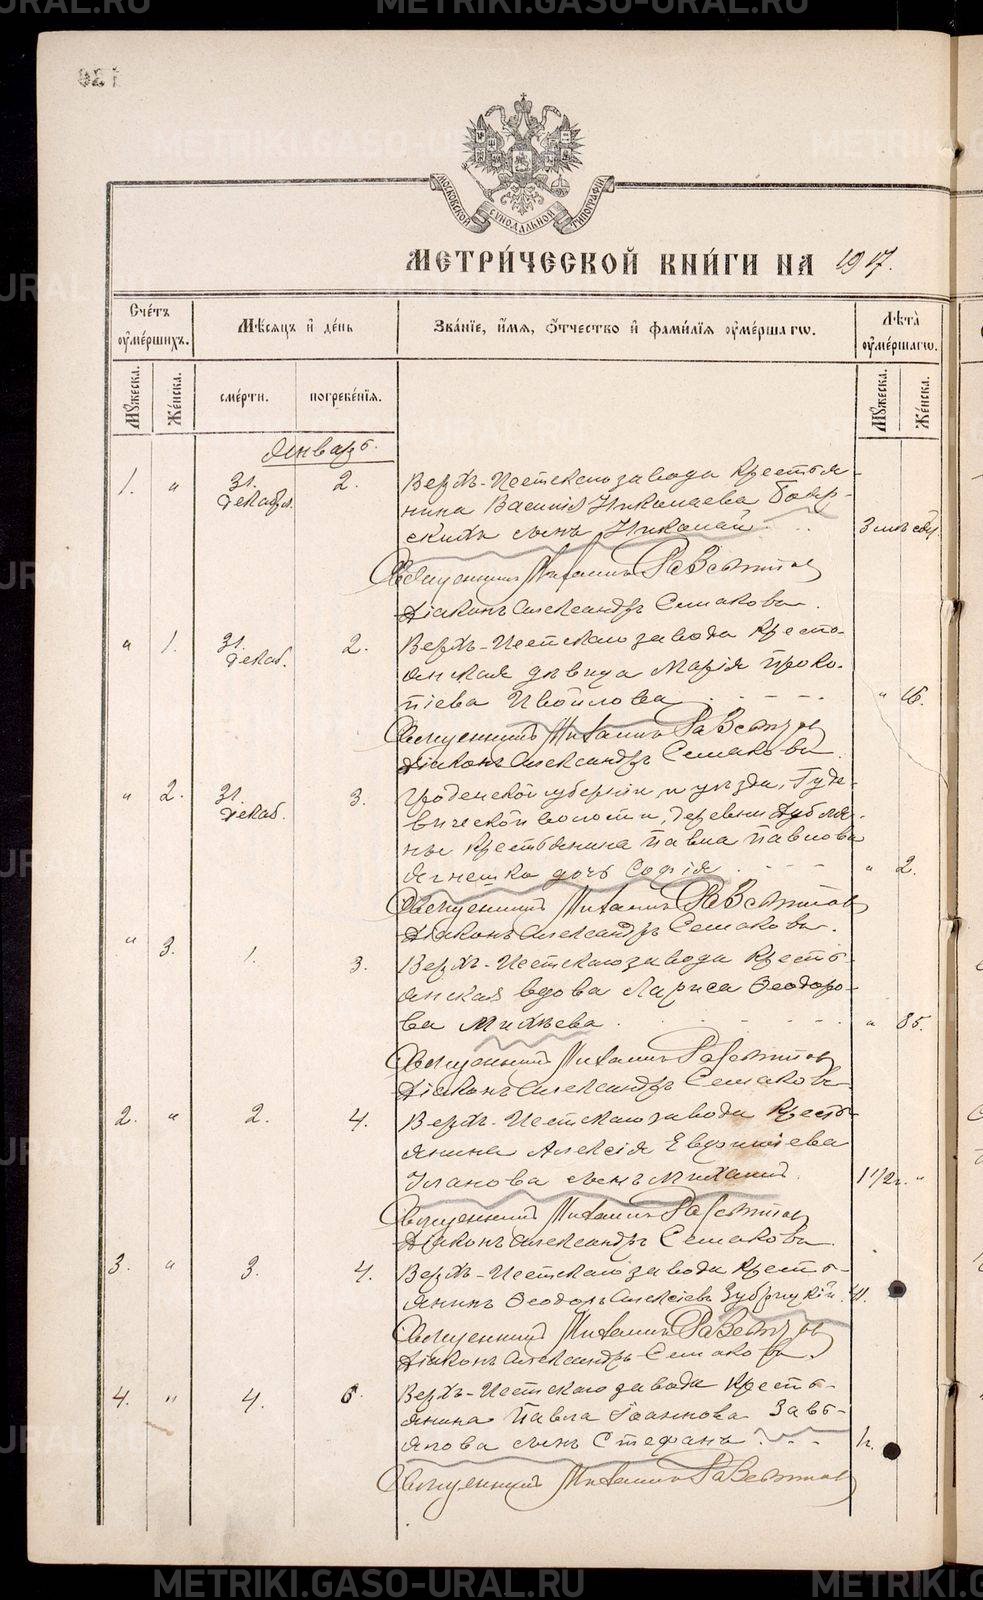 METRIKI.GASO-URAL.RU
МОСКОВСКОЙ СѴНОДАЛЬНОЙ ТИПОГРАФІИ
МЕТРИ́ЧЕСКОЙ КНИ́ГИ НА 1917.
Сче́тъ ᲂу҆ме́ршихъ.
Мѣ́сяцъ и҆ де́нь
Зва́нїе, и҆́мя, ѻ҆́тчество и҆ фами́лїя ᲂу҆ме́ршагѡ.
Лѣ̑та ᲂу҆ме́ршагѡ.
Мꙋ́жеска.
Же́нска.
сме́рти.
погребе́нїя.
Мꙋ́жеска.
Же́нска.
Январь.
1. " 31. Декабря. 2. Верхъ-Исетскаго завода крестья-
нина Василія Николаева Бояр-
скихъ сынъ Николай . . 3 мѣсяц.
Священникъ Михаилъ
Діаконъ Александръ Семаковъ.
" 1. 31. Декаб. 2. Верхъ-Исетскаго завода кресть-
янская дѣвица Марія Проко-
піева . . . " 16.
Священникъ Михаилъ
Діаконъ Александръ Семаковъ.
" 2. 31. Декаб. 3. Гроденской губерніи и уѣзда, Гуде-
вической волости, деревни
крестьянина Павла Павлова
дочь Софія . . . " 2.
Священникъ Михаилъ
Діаконъ Александръ Семаковъ.
" 3. 1. 3. Верхъ-Исетскаго завода кресть-
янская вдова Лариса Ѳеодоро-
ва Михѣева . . . " 85.
Священникъ Михаилъ
Діаконъ Александръ Семаковъ
2. " 2. 4. Верхъ-Исетскаго завода кресть-
янина Алексія
сынъ Михаилъ. 1 1/2 г. "
Священникъ Михаилъ
Діаконъ Александръ Семаковъ.
3. " 3. 4. Верхъ-Исетскаго завода кресть-
янинъ Ѳеодоръ Алексіевъ Зубрицкій.
Священникъ Михаилъ
Діаконъ Александръ Семаковъ.
4. " 4. 6. Верхъ-Исетскаго завода кресть-
янина Павла Іоаннова Завь-
ялова сынъ Стефанъ . . .
Священникъ Михаилъ